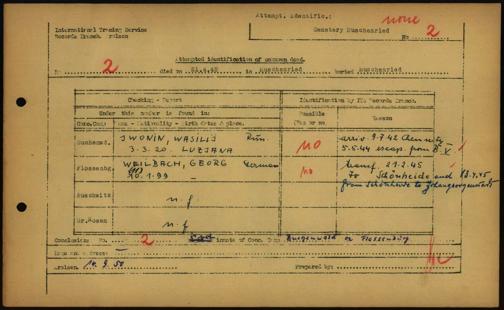 Attempt. Identific.:
none
International Tracing Service
Records Branch. Arolsen
Cemetery Muschenried
No 2
2
Attempted identification of unknown dead.
No 2 died on 21.4.45 in Muschenried buried Muschenried
Checking - Report
Identification by ITS Records Branch.
Under this number is found in:
Possible
Yes or no
Reason
Conc.Camp
Name - Nationality - Birth date & place.
Buchenwd.
IWONIN, WASILIJ Russ.
3.3.20. LUBJANA
no
arriv. 9.7.42
5.5.44 escap. from
Flossenbg.
WEILBACH, GEORG German
20.1.99 –
no
transf. 21.2.45
To Schönheide and 13.4.45
from Schönheide to
Auschwitz
n.f
Gr.Rosen
n.f
Conclusion: No. 2 inmate of Conc. Camp Buchenwald or Flossenbürg
no
Arolsen 14.9.50
Prepared by: